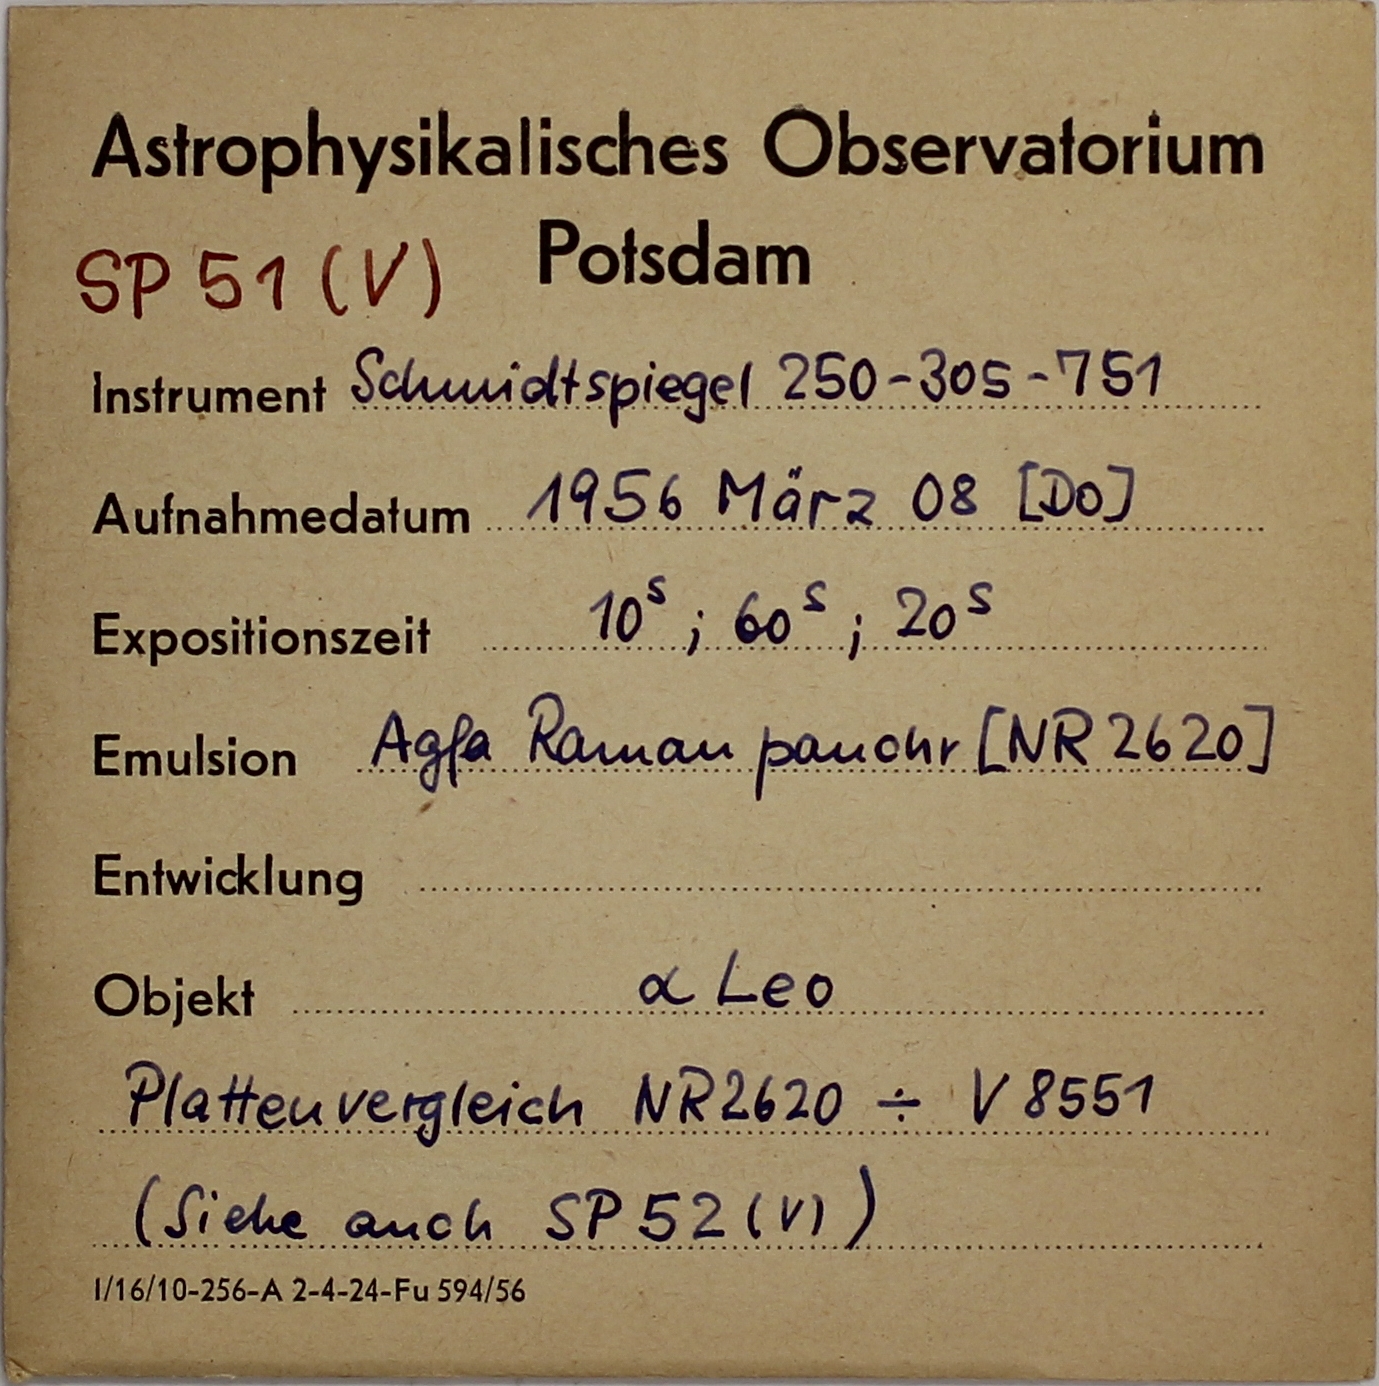 Astrophysikalisches Observatorium
Potsdam
SP 51 (V)
Instrument Schmidtspiegel 250-305-751
Aufnahmedatum 1956 März 08 [Do]
Expositionszeit 10ˢ ; 60ˢ ; 20ˢ
Emulsion Agfa Raman panchr [NR 2620]
Entwicklung
Objekt α Leo
Plattenvergleich NR2620 ÷ V 8551
(Siehe auch SP 52 (V))
I/16/10-256-A 2-4-24-Fu 594/56